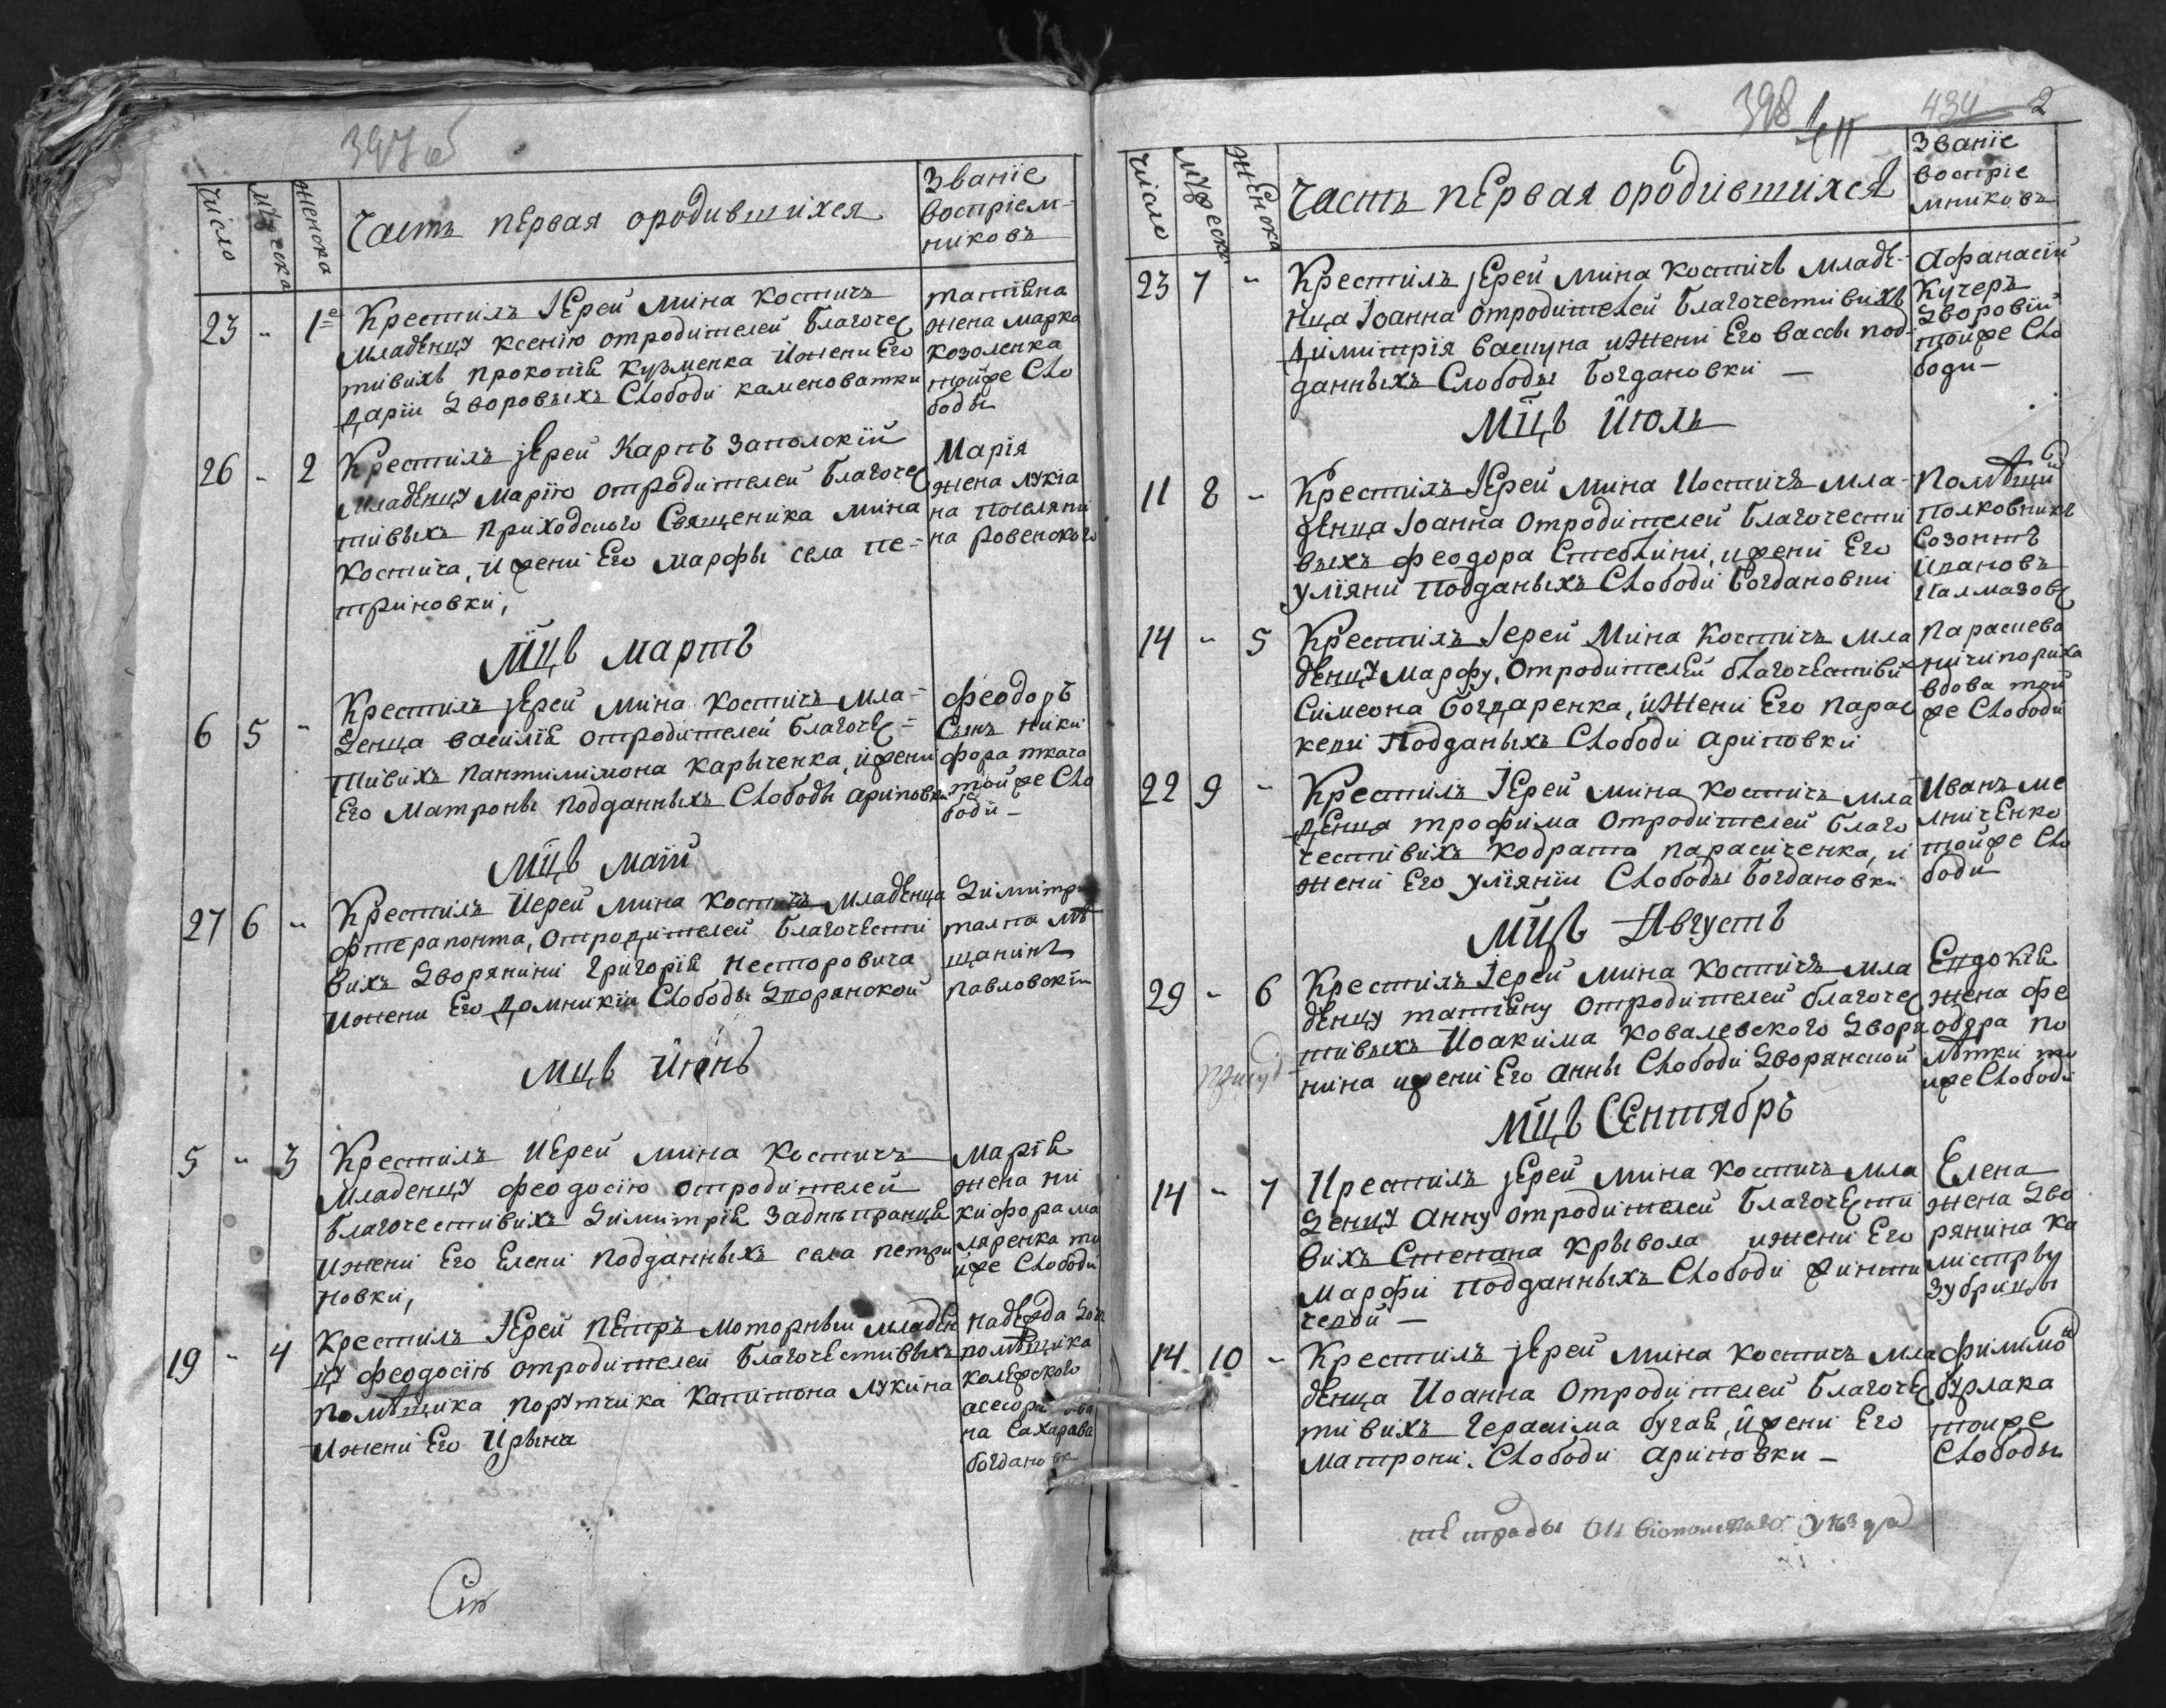 397 об
Число
Мужеска
Женска
Часть пЕрвая ородившихся
Званіе
воспріем-
никовъ
23 - 1е
Крестилъ IЕрей Мина Костичъ
младЕнцу Ксенію отродителей благочес
тивихъ Прокопія Кузменка ижени Его
Даріи дворовыхъ Слободи Каменоватки
татіяна
жена Марка
Козоленка
тойже Сло
боды
26 - 2
Крестилъ іЕрей Карпъ Заполскій
младЕнцу Марію отродителей благочес
тивыхъ приходского Священика Мина
Костича, ижени Его Марфы села Пе-
триновки,
Марія
жена Лукіа
на
на Ровенского
Мцъ Мартъ
6 5 -
Крестилъ іЕрей Мина Костичъ мла-
денца Василія отродителей благочес-
тивихъ Пантилимона Карыченка, ижени
Его Матроны подданныхъ Слободы Ариповки
Феодоръ
Сынъ Ники
фора ткача
тойже Сло
боди -
Мцъ Маій
27 6 -
Крестилъ Иерей Мина Костичъ младЕнца
Фтерапонта, Отродителей благочести
вихъ дворянини Григорія Несторовича
ижени Его Домникіи Слободы Дворянской
Димитри
талпа мѣ
щанинъ
павловскій
Мцъ Июнь
5 - 3
Крестилъ ИЕрей Мина Костичъ
младенцу Феодосію отродителей
благочестивихъ Димитрія Заднѣпранця
ижени Его Елени подданныхъ села Петри
новки,
Марія
жена Ни
кифора Ма
ляренка то
йже Слободи
19 - 4
Крестилъ IЕрей ПЕтръ Моторный младЕн
цу Феодосію отродителей благочестивыхъ
помѣщика порутчика Капитона Лукина
ижени Его Ирына
надЕжда
помѣщика
колежского
асесора
на Сахарова
богдановки
398
411
434 2
Число
Мужеск
жЕнска
Часть пЕрвая ородившихся
Званіе
воспріе
мниковъ
23 7 -
Крестилъ іЕрей Мина Костичъ младЕ-
нца Іоанна отродителей благочестивихъ
Димитрія Вашуна ижени Его Вассы под-
данныхъ Слободы Богдановкі -
Афанасій
Кучеръ
Дворовій
тойже Сло
боди -
Мцъ Июль
11 8 -
Крестилъ IЕрей Мина Костичъ мла-
дЕнца Іоанна Отродителей благочести
выхъ Феодора Стеблини, ижени Его
Улiяни подданыхъ Слободи Богдановки
Помѣщи
полковникъ
Созонтъ
Ивановъ
Калмазовъ
14 - 5
Крестилъ Іерей Мина Костичъ мла
дЕнцу Марфу, Отродителей благочЕстиви
Симеона Богдаренка, ижени Его Парас
кеви Подданыхъ Слободи Ариповки
Параскева
ничипориха
вдова той
же Слободи
22 9 -
Крестилъ IЕрей Мина Костичъ мла
дЕнца Трофима Отродителей благо
честивихъ Кодрата Парасиченка, и
жени Его Улiянiи Слободы Богдановки
Иванъ Ме
лничЕнко
тойже Сло
боди
Мцъ Августъ
29 - 6
Крестилъ Іерей Мина Костичъ мла
дЕнцу татіану отродителей благочес
тивыхъ Иоакима Ковалевского Дворя
нина ижени Его Анны Слободи Дворянской
Евдокія
жена Фе
одора По
лѣтки то
йже Слободи
Мцъ СЕнтябръ
14 - 7
Крестилъ іЕрей Мина Костичъ мла
денцу Анну отродителей благочЕсти
вихъ Степана Крывола ижени Его
Марфи подданныхъ Слободи
Елена
жена Дво
рянина Ка
листрату
Зубрицы
14 10 -
Крестилъ іЕрей Мина Костичъ мла
дЕнца Иоанна Отродителей благочЕс
тивихъ Герасима Бугая, ижени Его
Матрони. Слободи Ариповки -
Филимо
бурлака
тойже
Слободы
тЕтрады Оливіопольскаго уѣзда